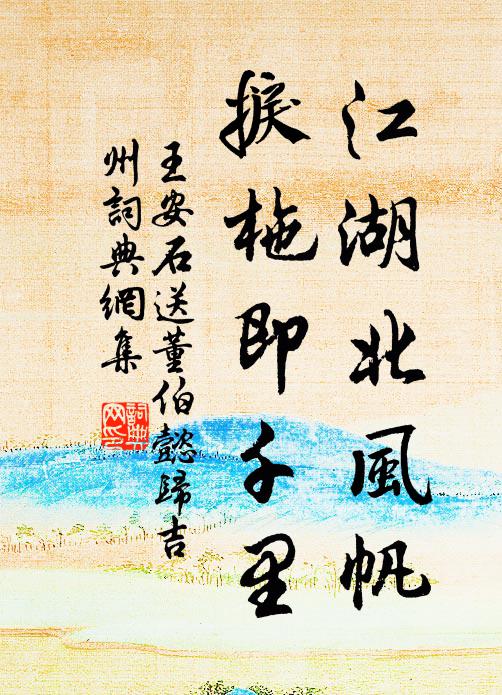 江湖北風帆
捩柂即千里
王安石送董伯懿歸吉
州詞典網集
詞典
网印